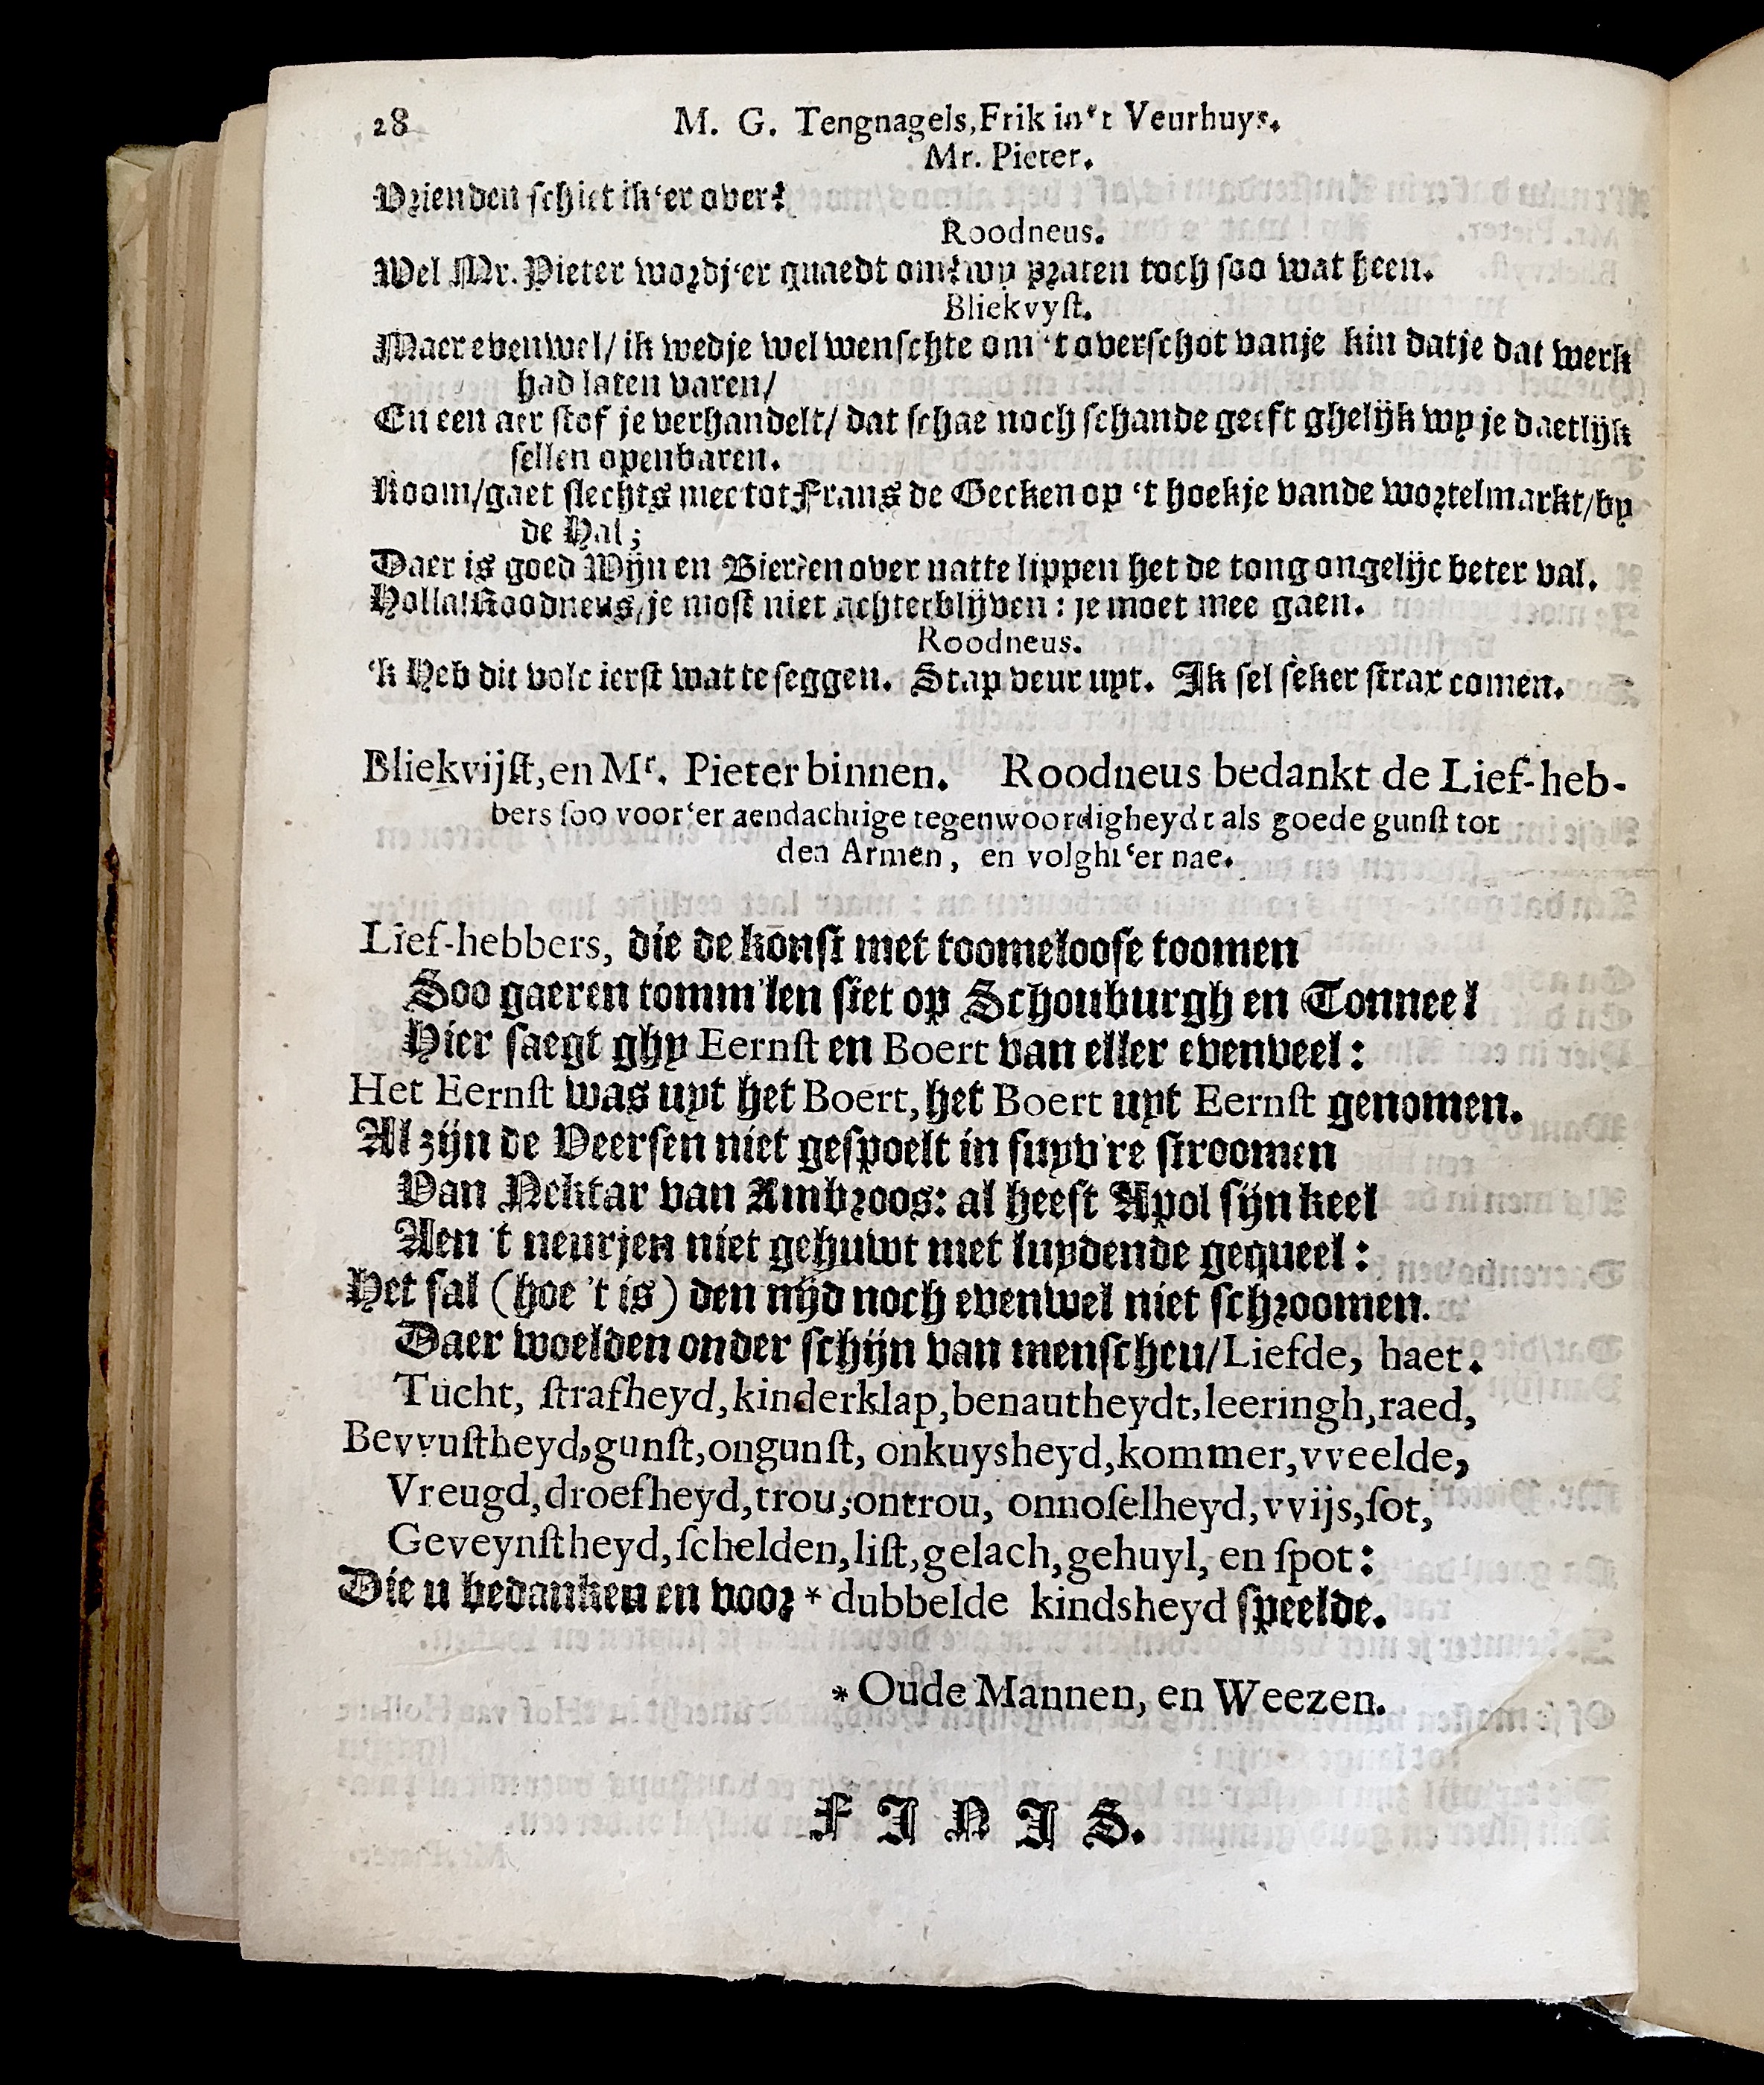 28 M. G. Tengnagels, Frik in't Veurhuys.
Mr. Pieter.
Vrienden schiet ik 'er over?
Roodneus.
Wel Mr. Pieter wordj'er quaedt om? wy praten toch soo wat heen.
Bliekvyst.
Maer evenwel/ ik wedje wel wenschte om 't overschot vanje kin datje dat werk
had laten varen/
En een aer stof je verhandelt/ dat schae noch schande geeft ghelijk wy je daetlijk
sellen openbaren.
Koom/gaet slechts mee tot Frans de Gecken op 't hoekje vande wortelmarkt/by
de Hal;
Daer is goed Wijn en Bier: en over natte lippen het de tong ongelijc beter val.
Holla! Roodneus, je most niet achterblijven: je moet mee gaen.
Roodneus.
'k Heb dit volc ierst wat te seggen. Stap veur uyt. Ik sel seker strax comen.
Bliekvijst, en Mr. Pieter binnen. Roodneus bedankt de Lief-heb-
bers soo voor 'er aendachtige tegenwoordigheydt als goede gunst tot
den Armen, en volght 'er nae.
Lief-hebbers, die de konst met toomeloose toomen
Soo gaeren tomm'len siet op Schouburgh en Tonneel
Hier saegt ghy Eernst en Boert van eller evenveel:
Het Eernst was uyt het Boert, het Boert uyt Eernst genomen.
Al zijn de Veersen niet gespoelt in suyv're stroomen
Van Nektar van Ambroos: al heeft Apol sijn keel
Aen 't neurjen niet gehuwt met luydende gequeel:
Het sal (hoe 't is) den nijd noch evenwel niet schroomen.
Daer woelden onder schijn van menschen/ Liefde, haet.
Tucht, strafheyd, kinderklap, benautheydt, leeringh, raed,
Bevvustheyd, gunst, ongunst, onkuysheyd, kommer, vveelde,
Vreugd, droefheyd, trou, ontrou, onnoselheyd, vvijs, sot,
Geveynstheyd, schelden, list, gelach, gehuyl, en spot:
Die u bedanken en voor * dubbelde kindsheyd speelde.
* Oude Mannen, en Weezen.
FINIS.